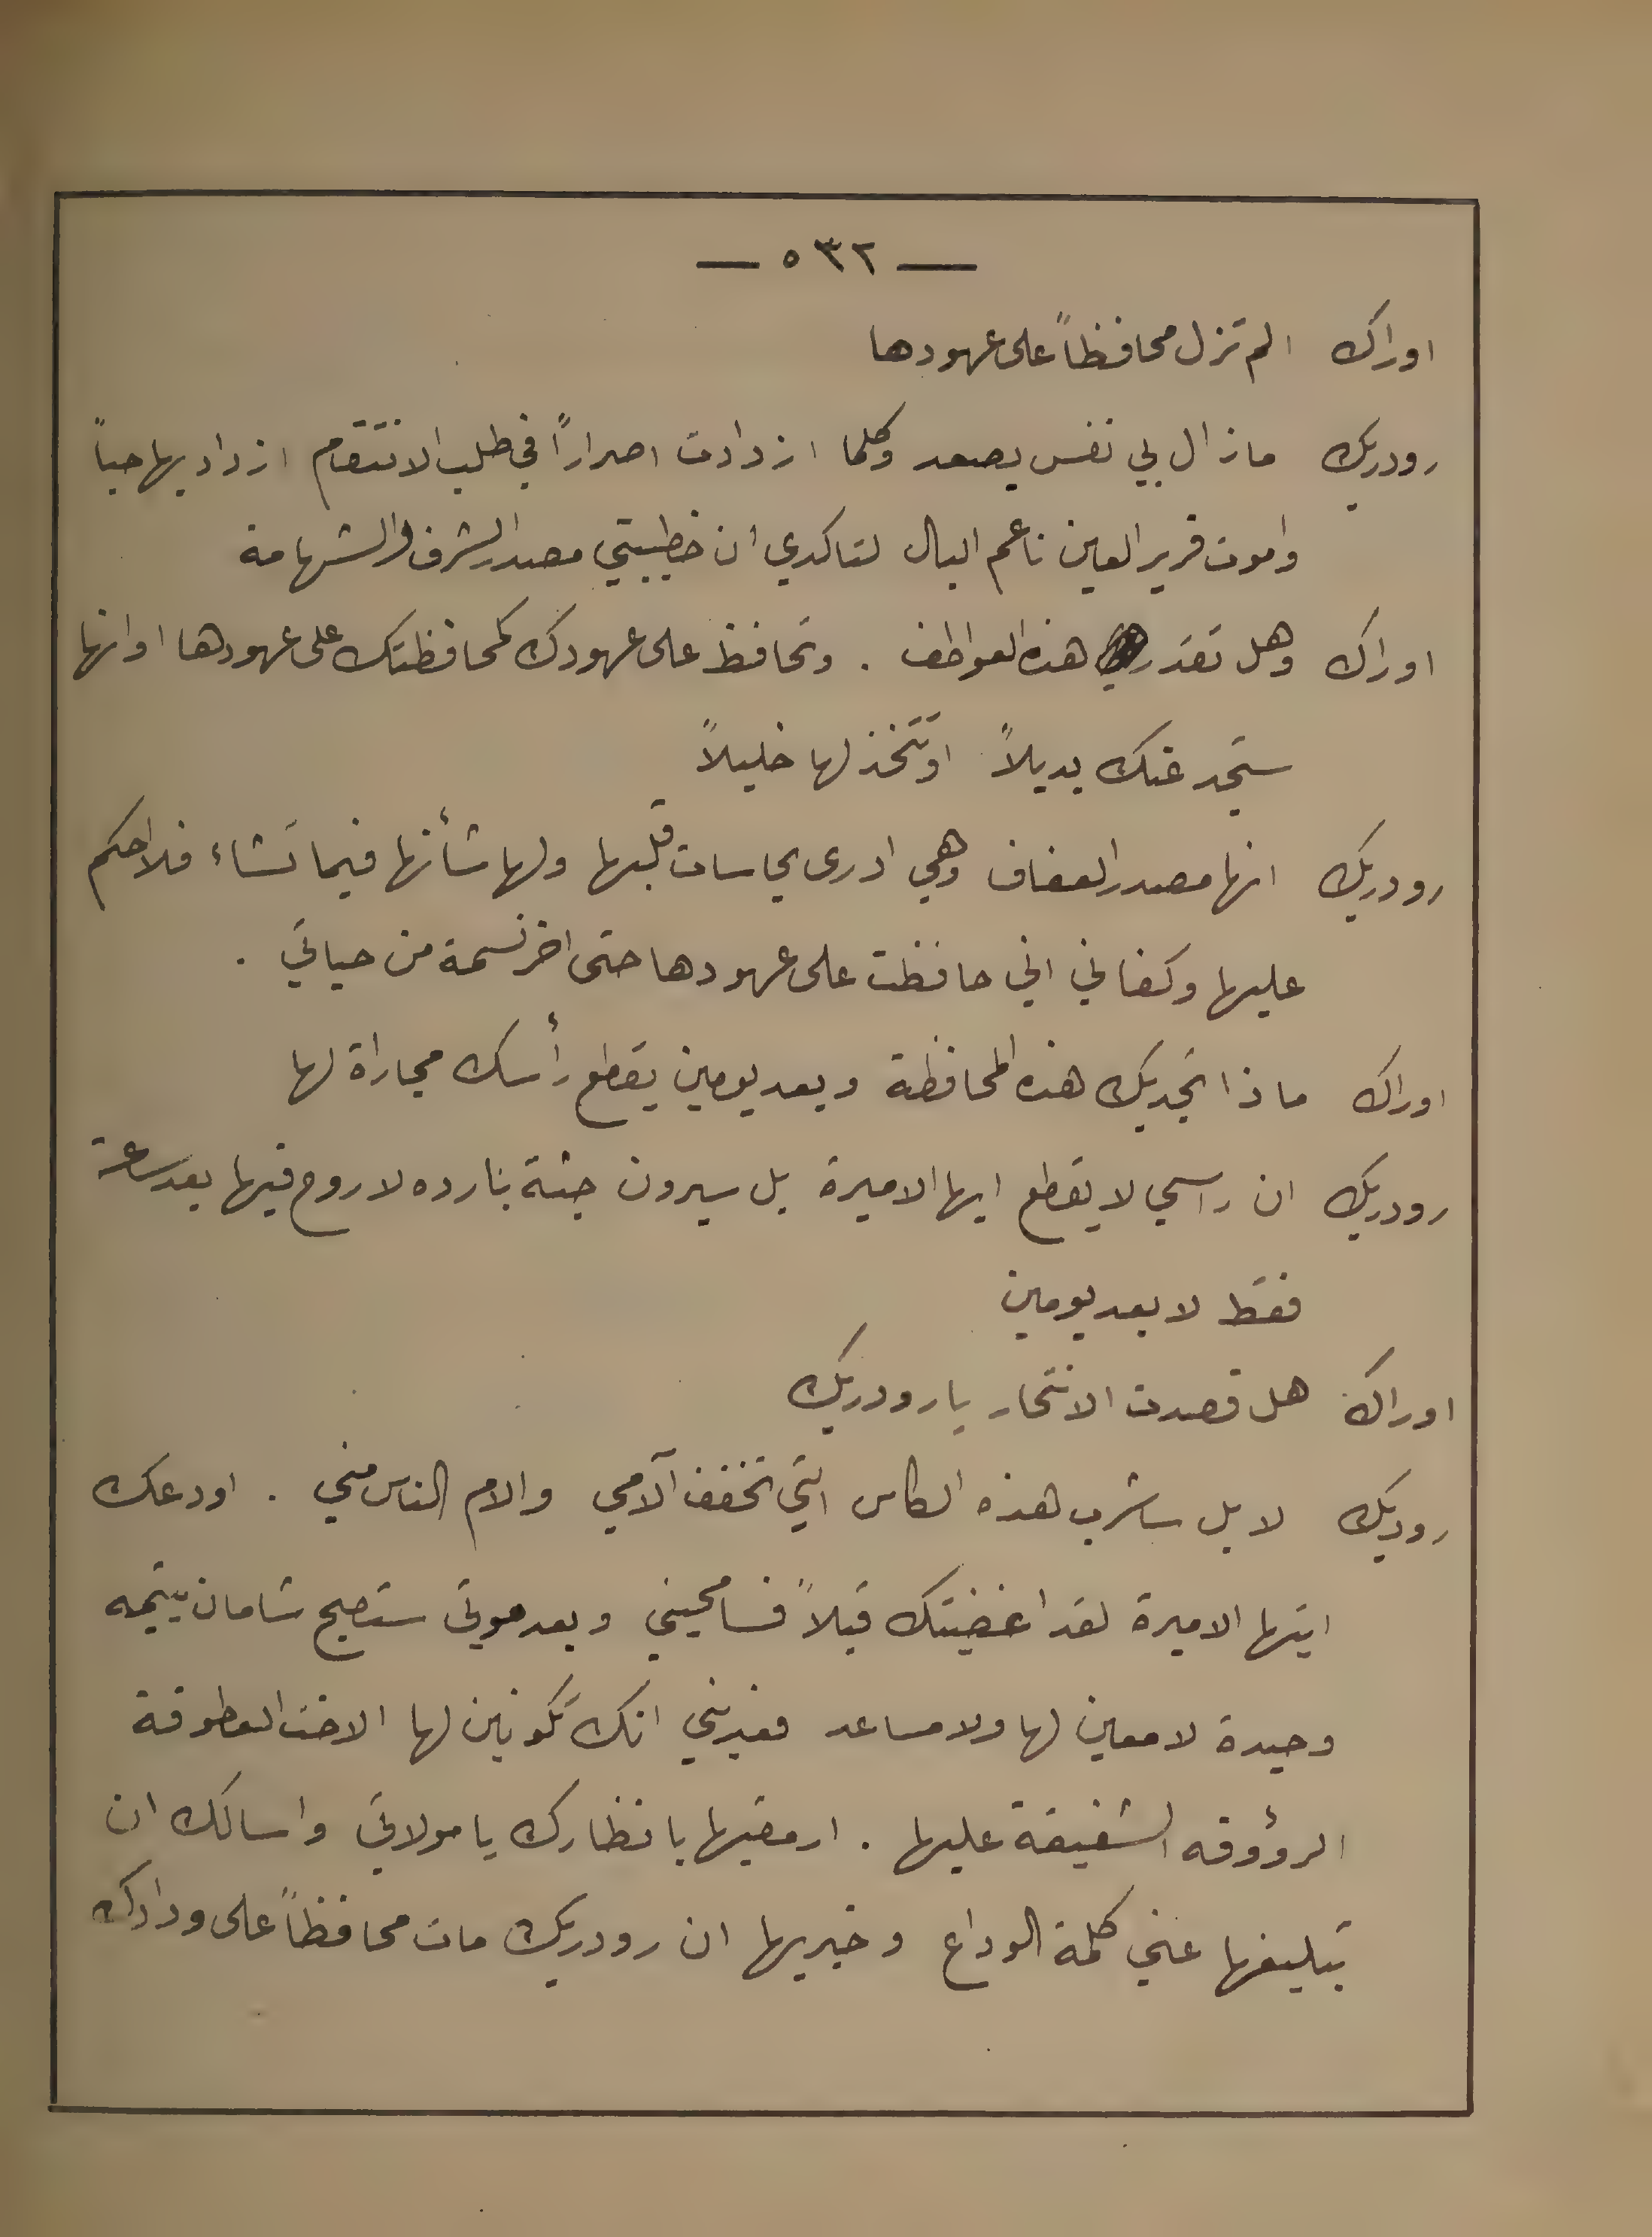 — ٥٣٢ —
اوراك الم تزل محافظاً على عهودها
رودريك مازال بي نفس يصعد وكلما ازدادت اصراراً في طلب الانتقام ازداد بها حباً
واموت قرير العين ناعم البال لتاكدي ان خطيبتي مصدر الشرف والشهامة
اوراك وهل تقدر هذه العواطف . وتحافظ على عهودك كمحافظتك على عهودها او انها
ستجد عنك بديلاً او تتخذ لها خليلاً
رودريك انها مصدر العفاف وهي ادرى بحاسات قلبها ولها شأنها فيما تشاء فلا احكم
عليها وكفاني اني حافظت على عهودها حتى اخر نسمة من حياتي .
اوراك ماذا تجديك هذه المحافظة وبعد يومين يقطع رأسك مجاراة لها
رودريك ان راسي لا يقطع ايها الاميرة بل سيرون جثة بارده لا روح فيها بعد ساعة
فقط لا بعد يومين
اوراك هل قصدت الانتحار يا رودريك
روديك لا بل ساشرب هذه الكاس التي تخفف آلامي والام الناس مني . اودعك
ايتها الاميرة لقد اغضبتك قبلاً فسامحيني وبعد موتي ستصبح شامان يتيمه
وحيدة لا معين لها ولا مساعد فعديني انك تكونين لها الاخت العطوفة
الرؤوفه الشفيقة عليها . ارمقيها بانظارك يا مولاتي واسالك ان
تبليغها عني كلمة الوداع وخبريها ان رودريك مات محافظاً على ودادك